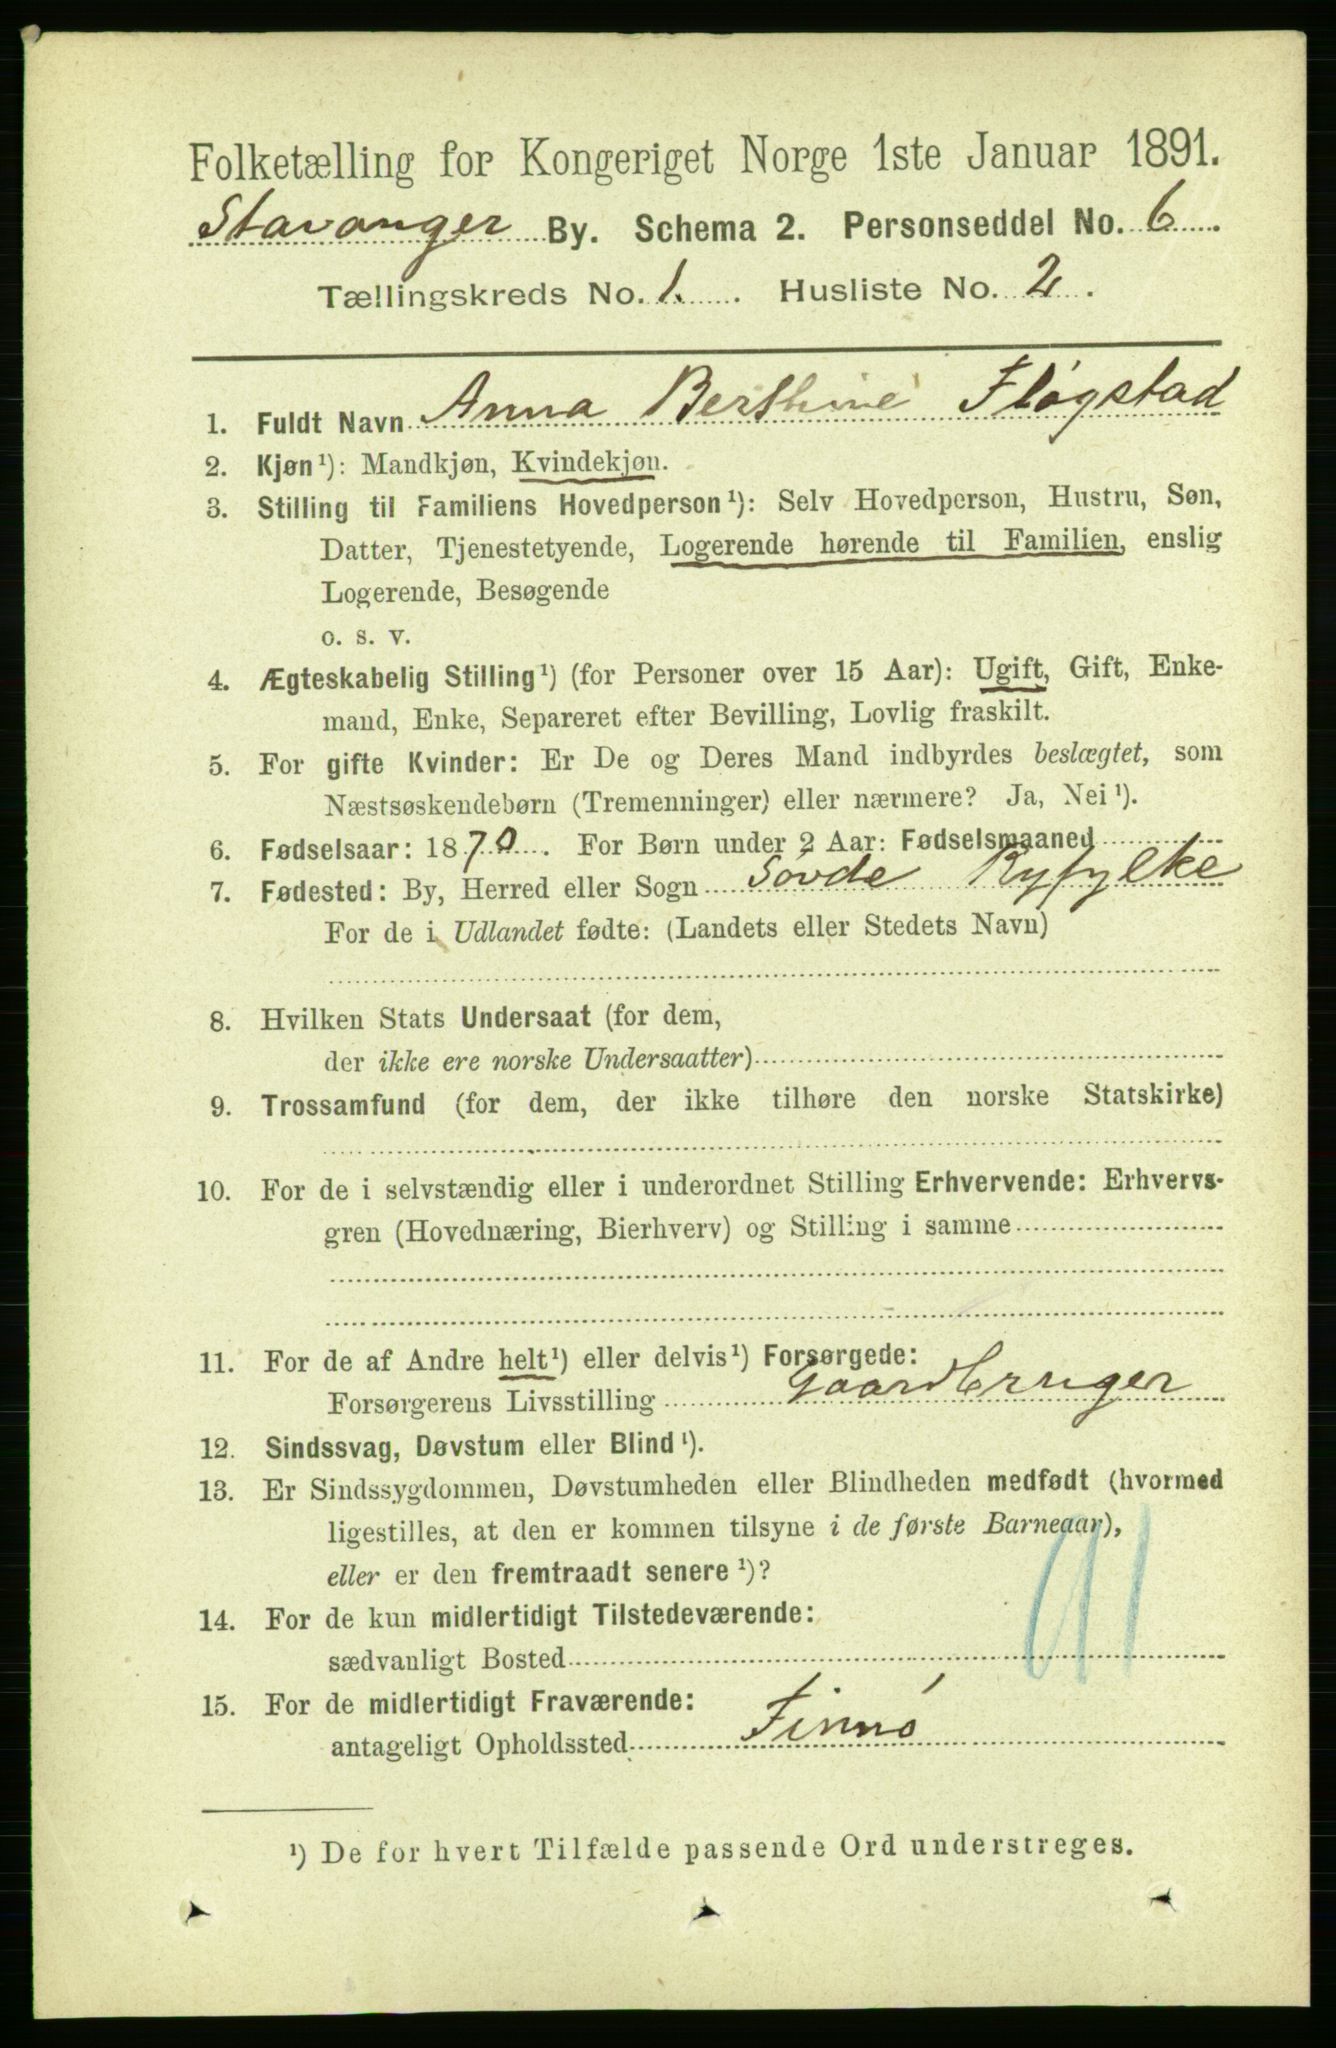 Folketælling for Kongeriget Norge 1ste Januar 1891.
Stavanger By. Schema 2. Personseddel No. 6.
Tællingskreds No. 1. Husliste No. 2.
1. Fuldt Navn Anna Berthine Fløgstad
2. Kjøn¹): Mandkjøn, Kvindekjøn.
3. Stilling til Familiens Hovedperson¹): Selv Hovedperson, Hustru, Søn,
Datter, Tjenestetyende, Logerende hørende til Familien, enslig
Logerende, Besøgende
o. s. v.
4. Ægteskabelig Stilling¹) (for Personer over 15 Aar): Ugift, Gift, Enke-
mand, Enke, Separeret efter Bevilling, Lovlig fraskilt.
5. For gifte Kvinder: Er De og Deres Mand indbyrdes beslægtet, som
Næstsøskendebørn (Tremenninger) eller nærmere? Ja, Nei¹).
6. Fødselsaar: 1870. For Børn under 2 Aar: Fødselsmaaned
7. Fødested: By, Herred eller Sogn Søvde Ryfylke
For de i Udlandet fødte: (Landets eller Stedets Navn)
8. Hvilken Stats Undersaat (for dem,
der ikke ere norske Undersaatter)
9. Trossamfund (for dem, der ikke tilhøre den norske Statskirke)
10. For de i selvstændig eller i underordnet Stilling Erhvervende: Erhvervs-
gren (Hovednæring, Bierhverv) og Stilling i samme
11. For de af Andre helt¹) eller delvis¹) Forsørgede:
Forsørgerens Livsstilling Gaardbruger
12. Sindssvag, Døvstum eller Blind¹).
13. Er Sindssygdommen, Døvstumheden eller Blindheden medfødt (hvormed
ligestilles, at den er kommen tilsyne i de første Barneaar),
eller er den fremtraadt senere¹)?
91
14. For de kun midlertidigt Tilstedeværende:
sædvanligt Bosted
15. For de midlertidigt Fraværende:
antageligt Opholdssted Finnø
¹) De for hvert Tilfælde passende Ord understreges.